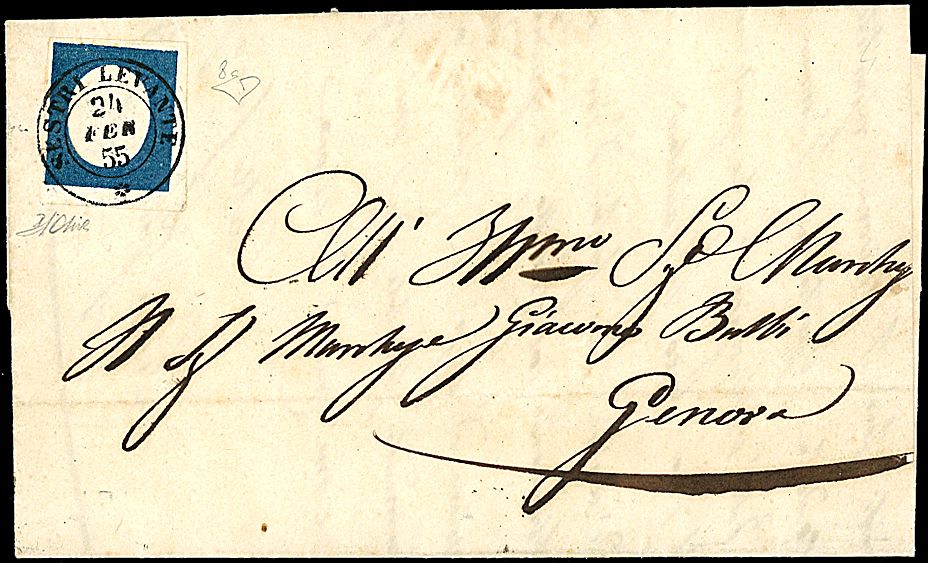 SESTRI LEVANTE
24
FEB
55
All' Ill.mo Sig. Marchese
Il Sig. Marchese Giacomo Balbi
Genova